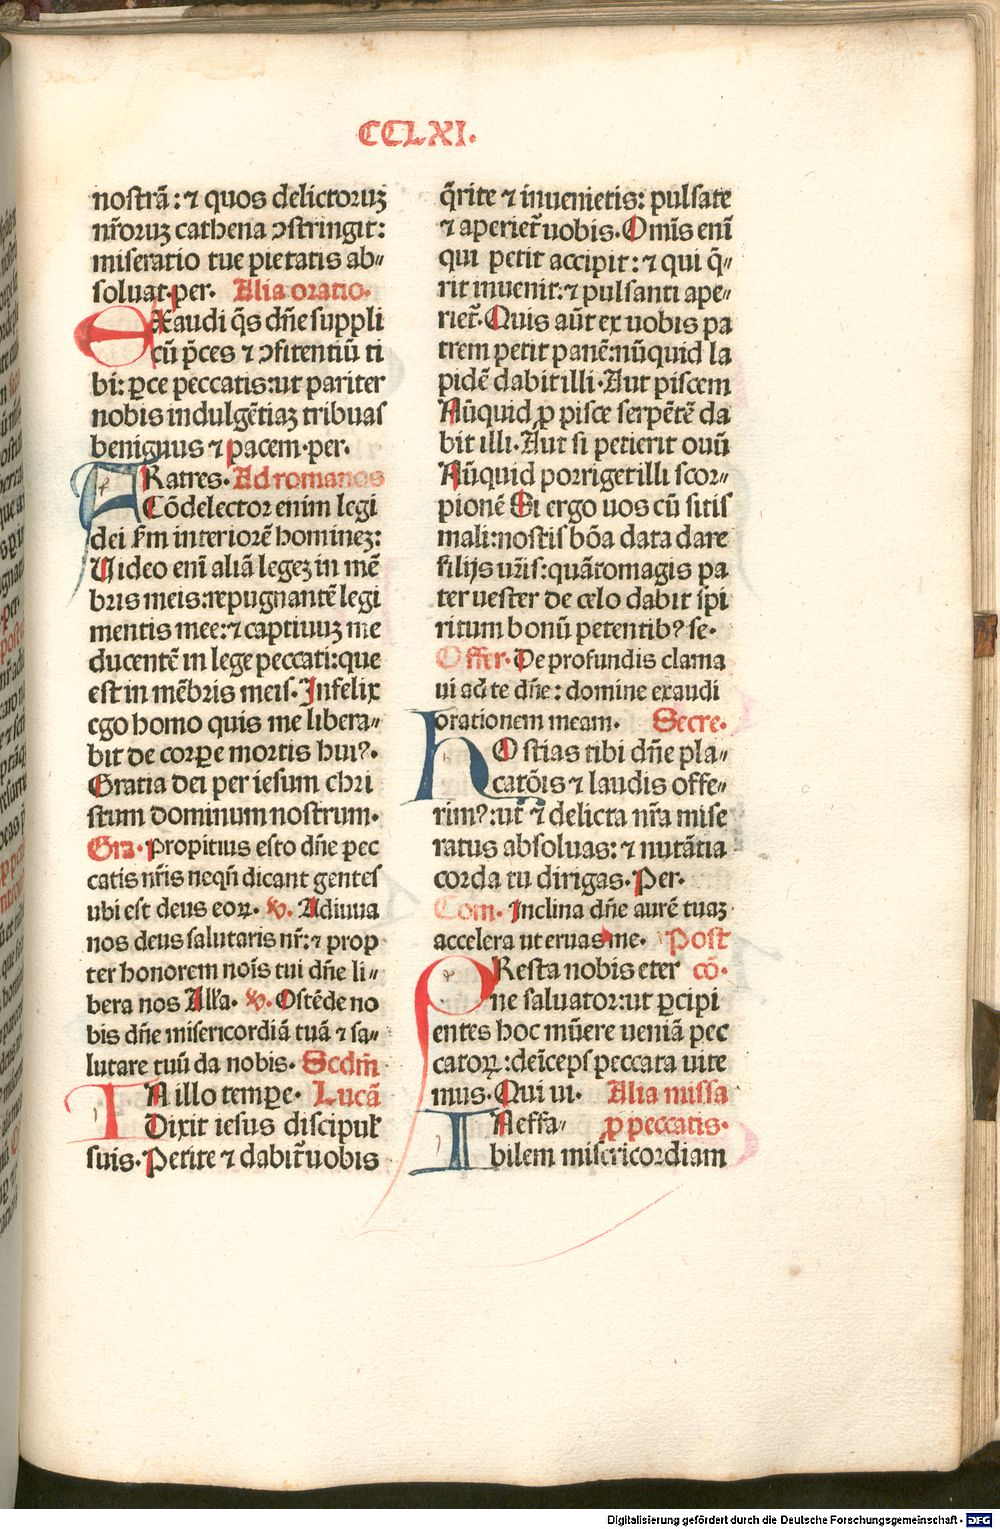 CCLXI.
nostrã: ⁊ quos delictoruꝫ
nr̃oruꝫ cathena ↄstringit:
miseratio tue pietatis ab⸗
soluat.per. Alia oratio.
EXaudi q̃s dñe suppli
cũ p̃ces ⁊ ↄfitentiũ ti
bi: ꝑce peccatis:ut pariter
nobis indulgẽtiaꝫ tribuas
benignus ⁊ pacem.per.
FRatres. Ad romanos
Cõdelector enim legi
dei fm interiorẽ homineꝫ:
Uideo enĩ aliã legeꝫ in mẽ
bris meis:repugnantẽ legi
mentis mee:⁊ captiuuꝫ me
ducentẽ in lege peccati:que
est in mẽbris meis. Infelix
ego homo quis me libera⸗
bit de corꝑe mortis huiꝰ.
Gratia dei per iesum chri
stum dominum nostrum.
Gra. Propitius esto dñe pec
catis nr̃is neqñ dicant gentes
ubi est deus eoꝝ. ꝟ. Adiuua
nos deus salutaris nr̃:⁊ prop
ter honorem noĩs tui dñe li⸗
bera nos Alľa. ꝟ. Ostẽde no
bis dñe misericordiã tuã ⁊ sa⸗
lutare tuũ da nobis. Scdm̃
IN illo temꝑe. Lucã
Dixit iesus discipuł
suis. Petite ⁊ dabit̃ uobis
q̃rite ⁊ inuenietis: pulsate
⁊ aperiet̃ uobis. Omĩs enĩ
qui petit accipit: ⁊ qui q̃⸗
rit inuenit:⁊ pulsanti ape⸗
riet̃. Quis aũt ex uobis pa
trem petit panẽ:nũquid la
pidẽ dabit illi. Aut piscem
Nũquid ꝓ pisce serpẽtẽ da
bit illi. Aut si petierit ouũ
Nũquid porriget illi scor⸗
pionẽ Si ergo uos cũ sitis
mali:nostis bõa data dare
filijs ur̃is:quãtomagis pa
ter uester de celo dabit spi
ritum bonũ petentibꝰ se.
Offer. De profundis clama
ui ad te dñe: domine exaudi
orationem meam. Secre.
HOstias tibi dñe pla⸗
catõis ⁊ laudis offe⸗
rimꝰ:ut ⁊ delicta nr̃a mise
ratus absoluas: ⁊ nutãtia
corda tu dirigas. Per.
Com. Inclina dñe aurẽ tuaꝫ
accelera ut eruas me. Post
PResta nobis eter cõ.
ne saluator:ut ꝑcipi
entes hoc mũere ueniã pec
catoꝝ:deĩceps peccata uite
mus. Qui ui. Alia missa
INeffa⸗ ꝓ peccatis.
bilem misericordiam
Digitalisierung gefördert durch die Deutsche Forschungsgemeinschaft - DFG